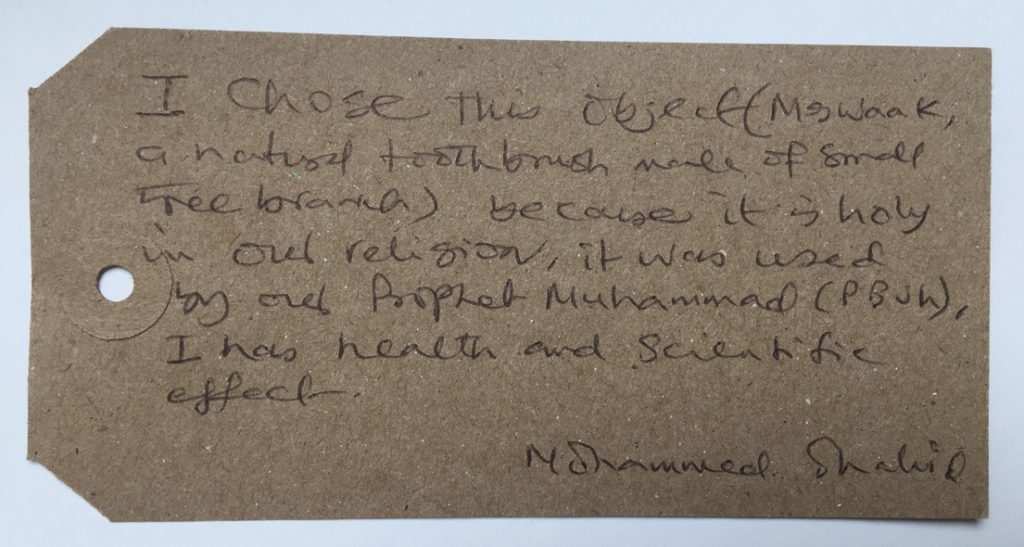 I Chose this object (Mswaak,
a natural toothbrush made of small
tree branch) because it is holy
in our religion, it was used
by our Prophet Muhammad (PBUh),
I has health and Scientific
effect.
Mohammed Shahid